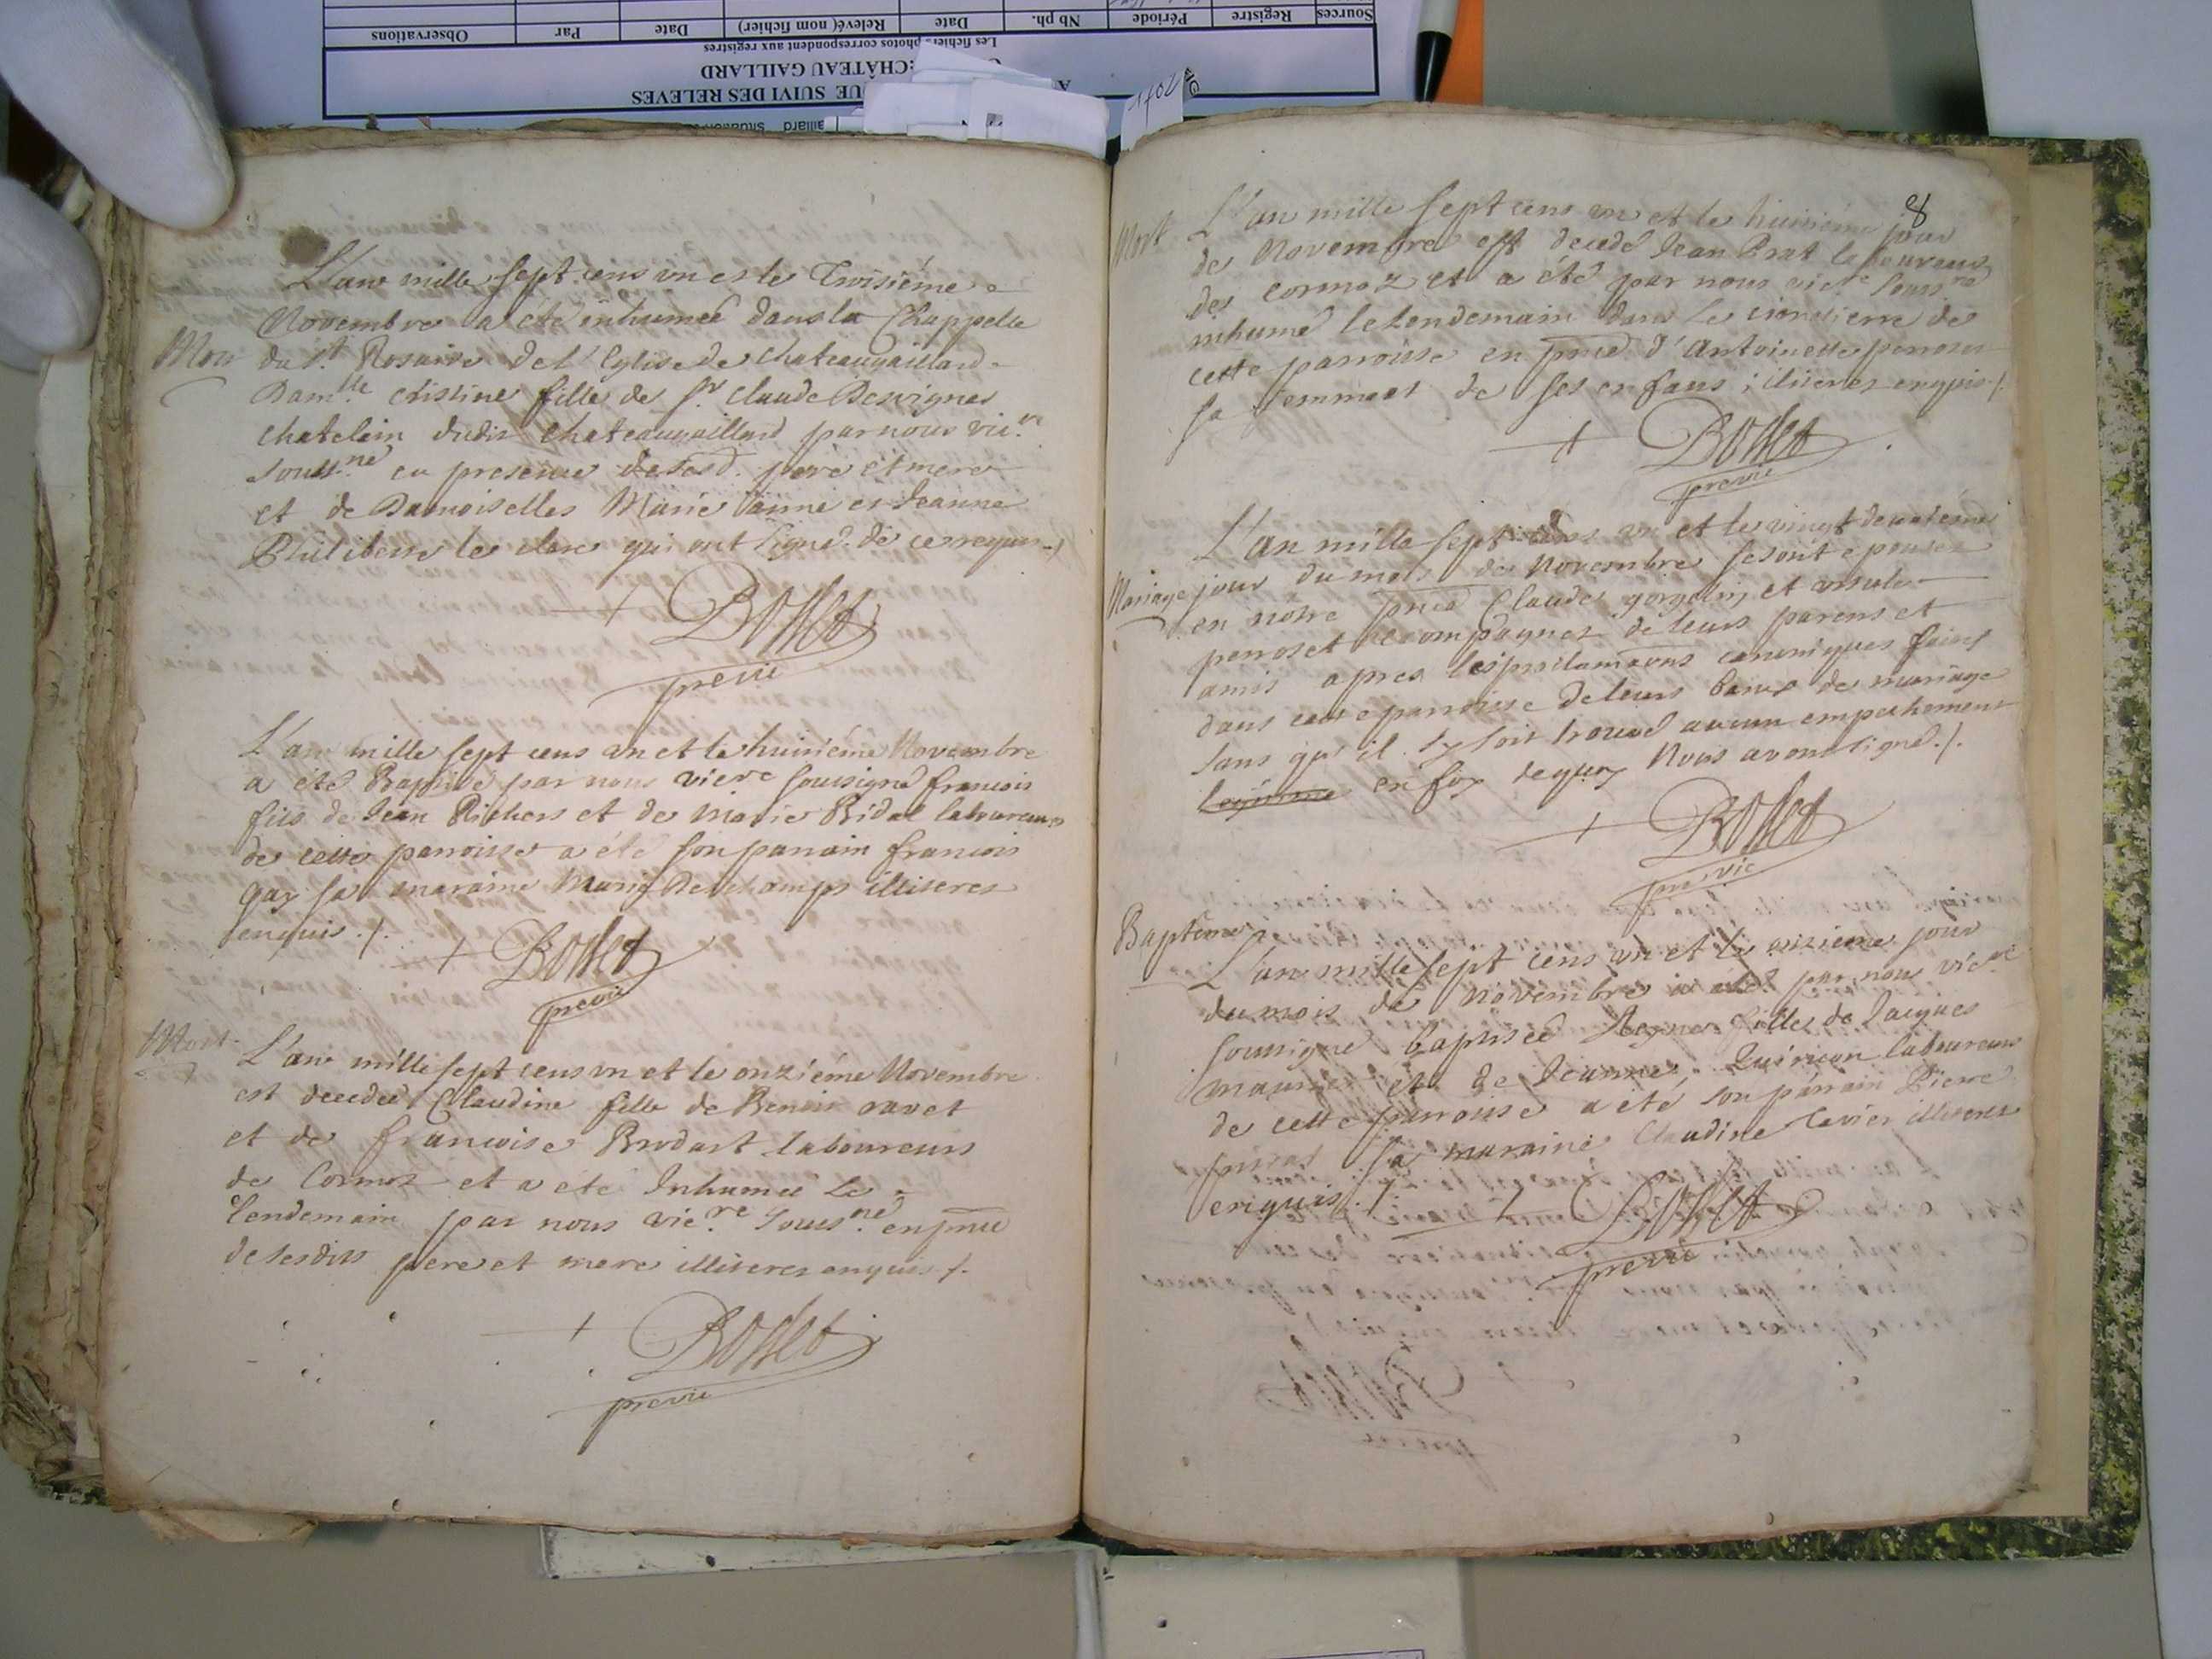 Sources Registre Période Nb ph. Date Relevé (nom fichier) Date Par Observations
Les fichiers photos correspondent aux registres
CHÂTEAU GAILLARD
UE SUIVI DES RELEVES
1702
L'an mille sept cens un et le Troisiéme
Novembre a été inhumée dans la Chappelle
Mort du St. Rosaire de l'Eglise de chateaugaillard
Dam.lle cristine fille de Sr claude Desvignes
chatelain dudit chateaugaillard par nous vic.re
Souss.né en presence de sesd. pere et mere
et de Damoiselles Marie anne et Jeanne
Philiberte qui ont signé de ce requis
+ Bosset
previc
L'an mille sept cens un et le huitiéme Novembre
a été Baptisé par nous vicre soussigné francois
fils de Jean Richers et de Marie Bidal laboureurs
de cette parroisse a été son parrain francois
gay sa maraine Marie Deschamps illiteres
enquis ./.
+ Bosset
previc
Mort
L'an mille sept cens un et le onziéme Novembre
est decedee Claudine fille de Benoit ravet
et de francoise Brodart laboureurs
de Cormoz et a été Inhumée Le
lendemain par nous vic.re souss.né en pnce
de sesdits pere et mere illiteres enquis ./.
+ Bosset
previc
8
Mort L'an mille sept cens un et le huitiéme jour
de Novembre est decedé Jean Prat laboureur
de cormoz et a été par nous vicre souss.né
inhumé le lendemain dans le cimetierre de
cette parroisse en pnce d'Antoinette perroset
sa femme et de ses enfans illiteres enquis ./.
+ Bosset
previc
L'an mille sept cens un et le vingt deuxiéme
Mariage jour du mois de Novembre se sont epousez
en notre pnce Claude gorgolin et ursule
perroset accompagnez de leurs parens et
amis apres les proclamaons canoniques faites
dans cette parroisse de leurs bans de mariage
sans qu'il s'y soit trouvé aucun empechement
legitime en foy de quoy Nous avons signé ./.
+ Bosset
previc
Baptême
L'an mille sept cens un et le jour
du mois de Novembre a été par nous vicre
soussigné baptisée Reyne fille de Jacques
et de Jeanne laboureurs
de cette parroisse a été son parrain Pierre
sa maraine Claudine Tavier illiteres
enquis ./.
+ Bosset
previc